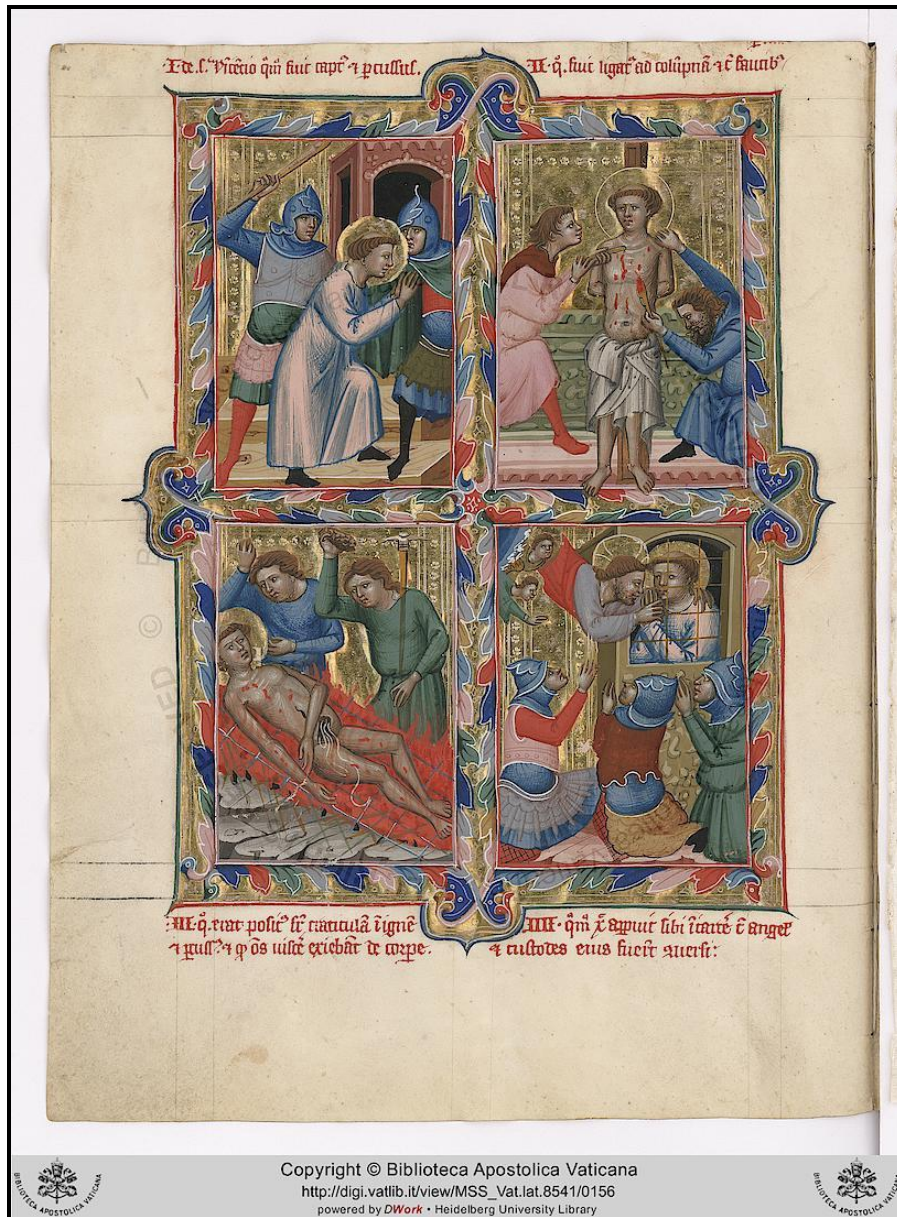 I. de. s. Vincēcio qm̄ fuit capt᷒ ⁊ ꝑcussus.
II. q. fuit ligat᷒ ad colūpnā ⁊ c̄ faucib᷒
III. q. erat posit᷒ sr̄ craticulā ī igne
⁊ ꝑcuss᷒ ⁊ ꝙ oīs exiebāt de corpe.
IIII. qm̄ x̄ apparuit sibi c̄ angel᷒
⁊ custodes eius fuer̄t
Copyright © Biblioteca Apostolica Vaticana
http://digi.vatlib.it/view/MSS_Vat.lat.8541/0156
powered by DWork • Heidelberg University Library
BIBLIOTECA APOSTOLICA VATICANA
BIBLIOTECA APOSTOLICA VATICANA